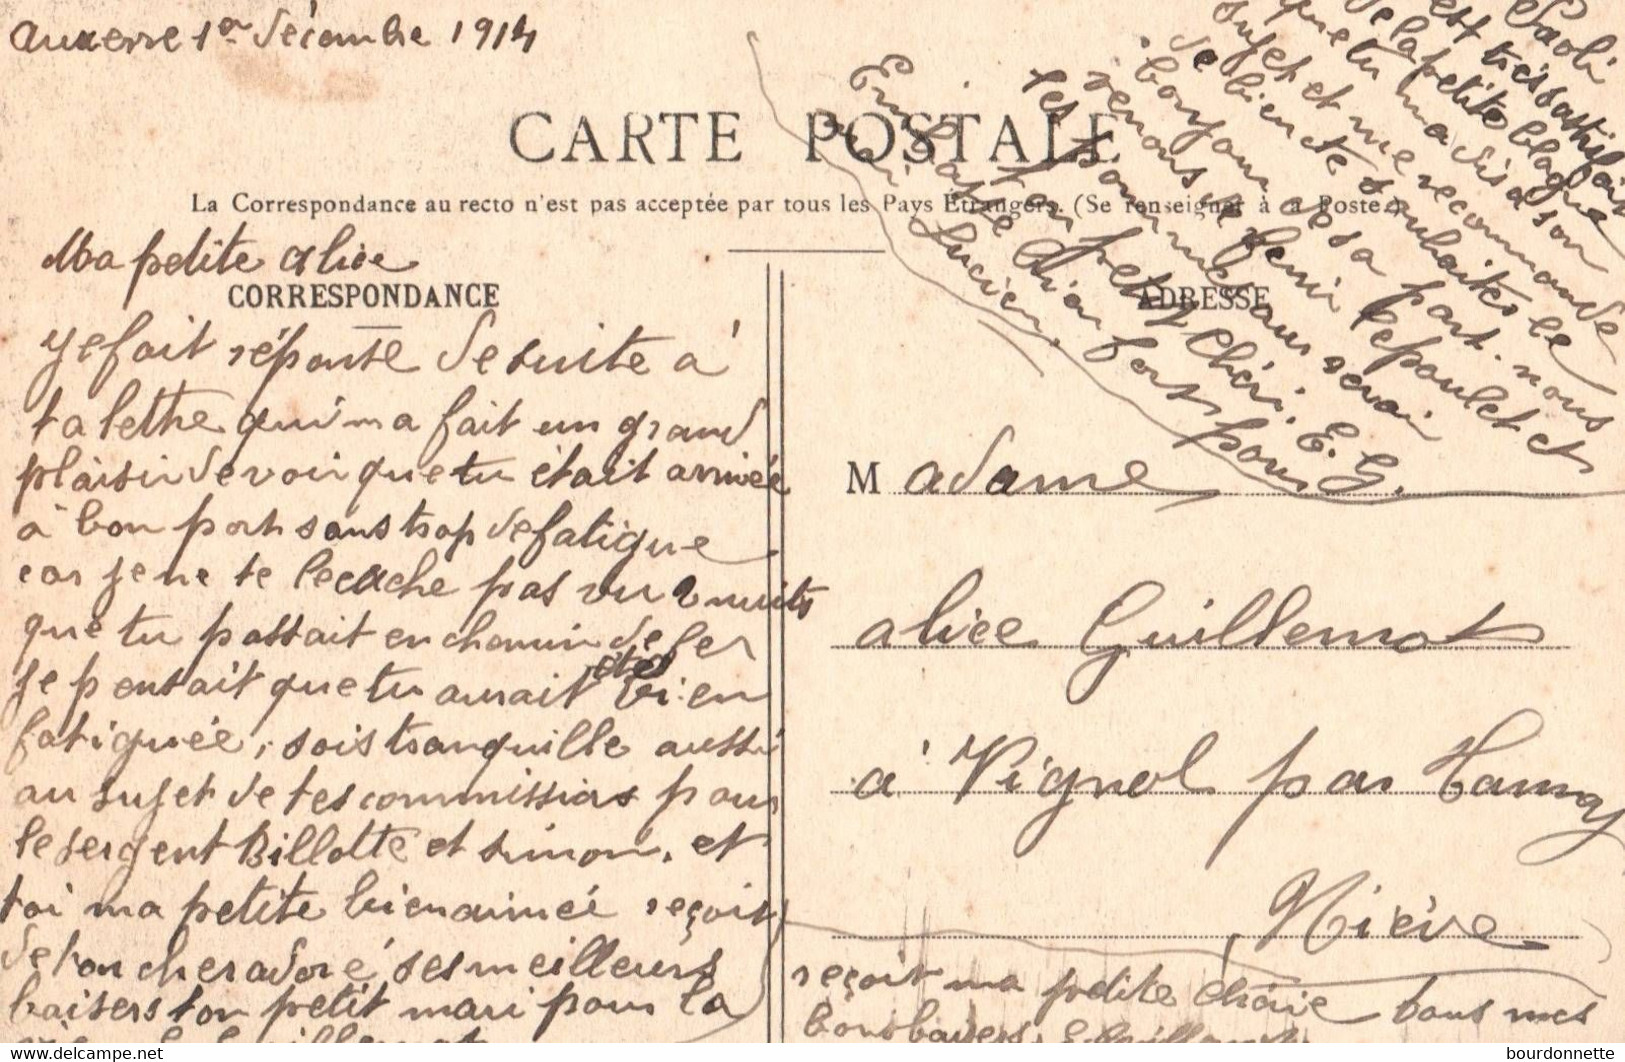 Auxerre 1er décembre 1914
CARTE POSTALE
La Correspondance au recto n'est pas acceptée par tous les Pays Étrangers. (Se renseigner à la Poste.)
Ma petite alice
CORRESPONDANCE
Je fait réponse de suite à
ta lettre qui m'a fait un grand
plaisir de voir que tu était arrivée
à bon port sans trop de fatigue
car je ne te le cache pas vu 2 nuits
que tu passait en chemin de fer
je pensait que tu aurait étés bien
fatiguée, sois tranquille aussi
au sujet de tes commissions pour
le sergent Billotte et simon, et
toi ma petite bien aimée reçoit
de ton cher adoré ses meilleurs
baisers ton petit mari pour la
Paoli
est très satisfait
de la petite blague
que tu m'a dis a son
sujet et me recommande
de bien te souhaiter le
bonjour de sa part. nous
venons de finir le poulet et
ton petit chéri. E. G.
Embrasse bien fort pour
moi Lucien.
ADRESSE
Madame
alice Guillemot
à Vignol par Tannay
Nièvre
reçoit ma petite chérie tous mes
bons baisers. E. Guillemot
bourdonnette